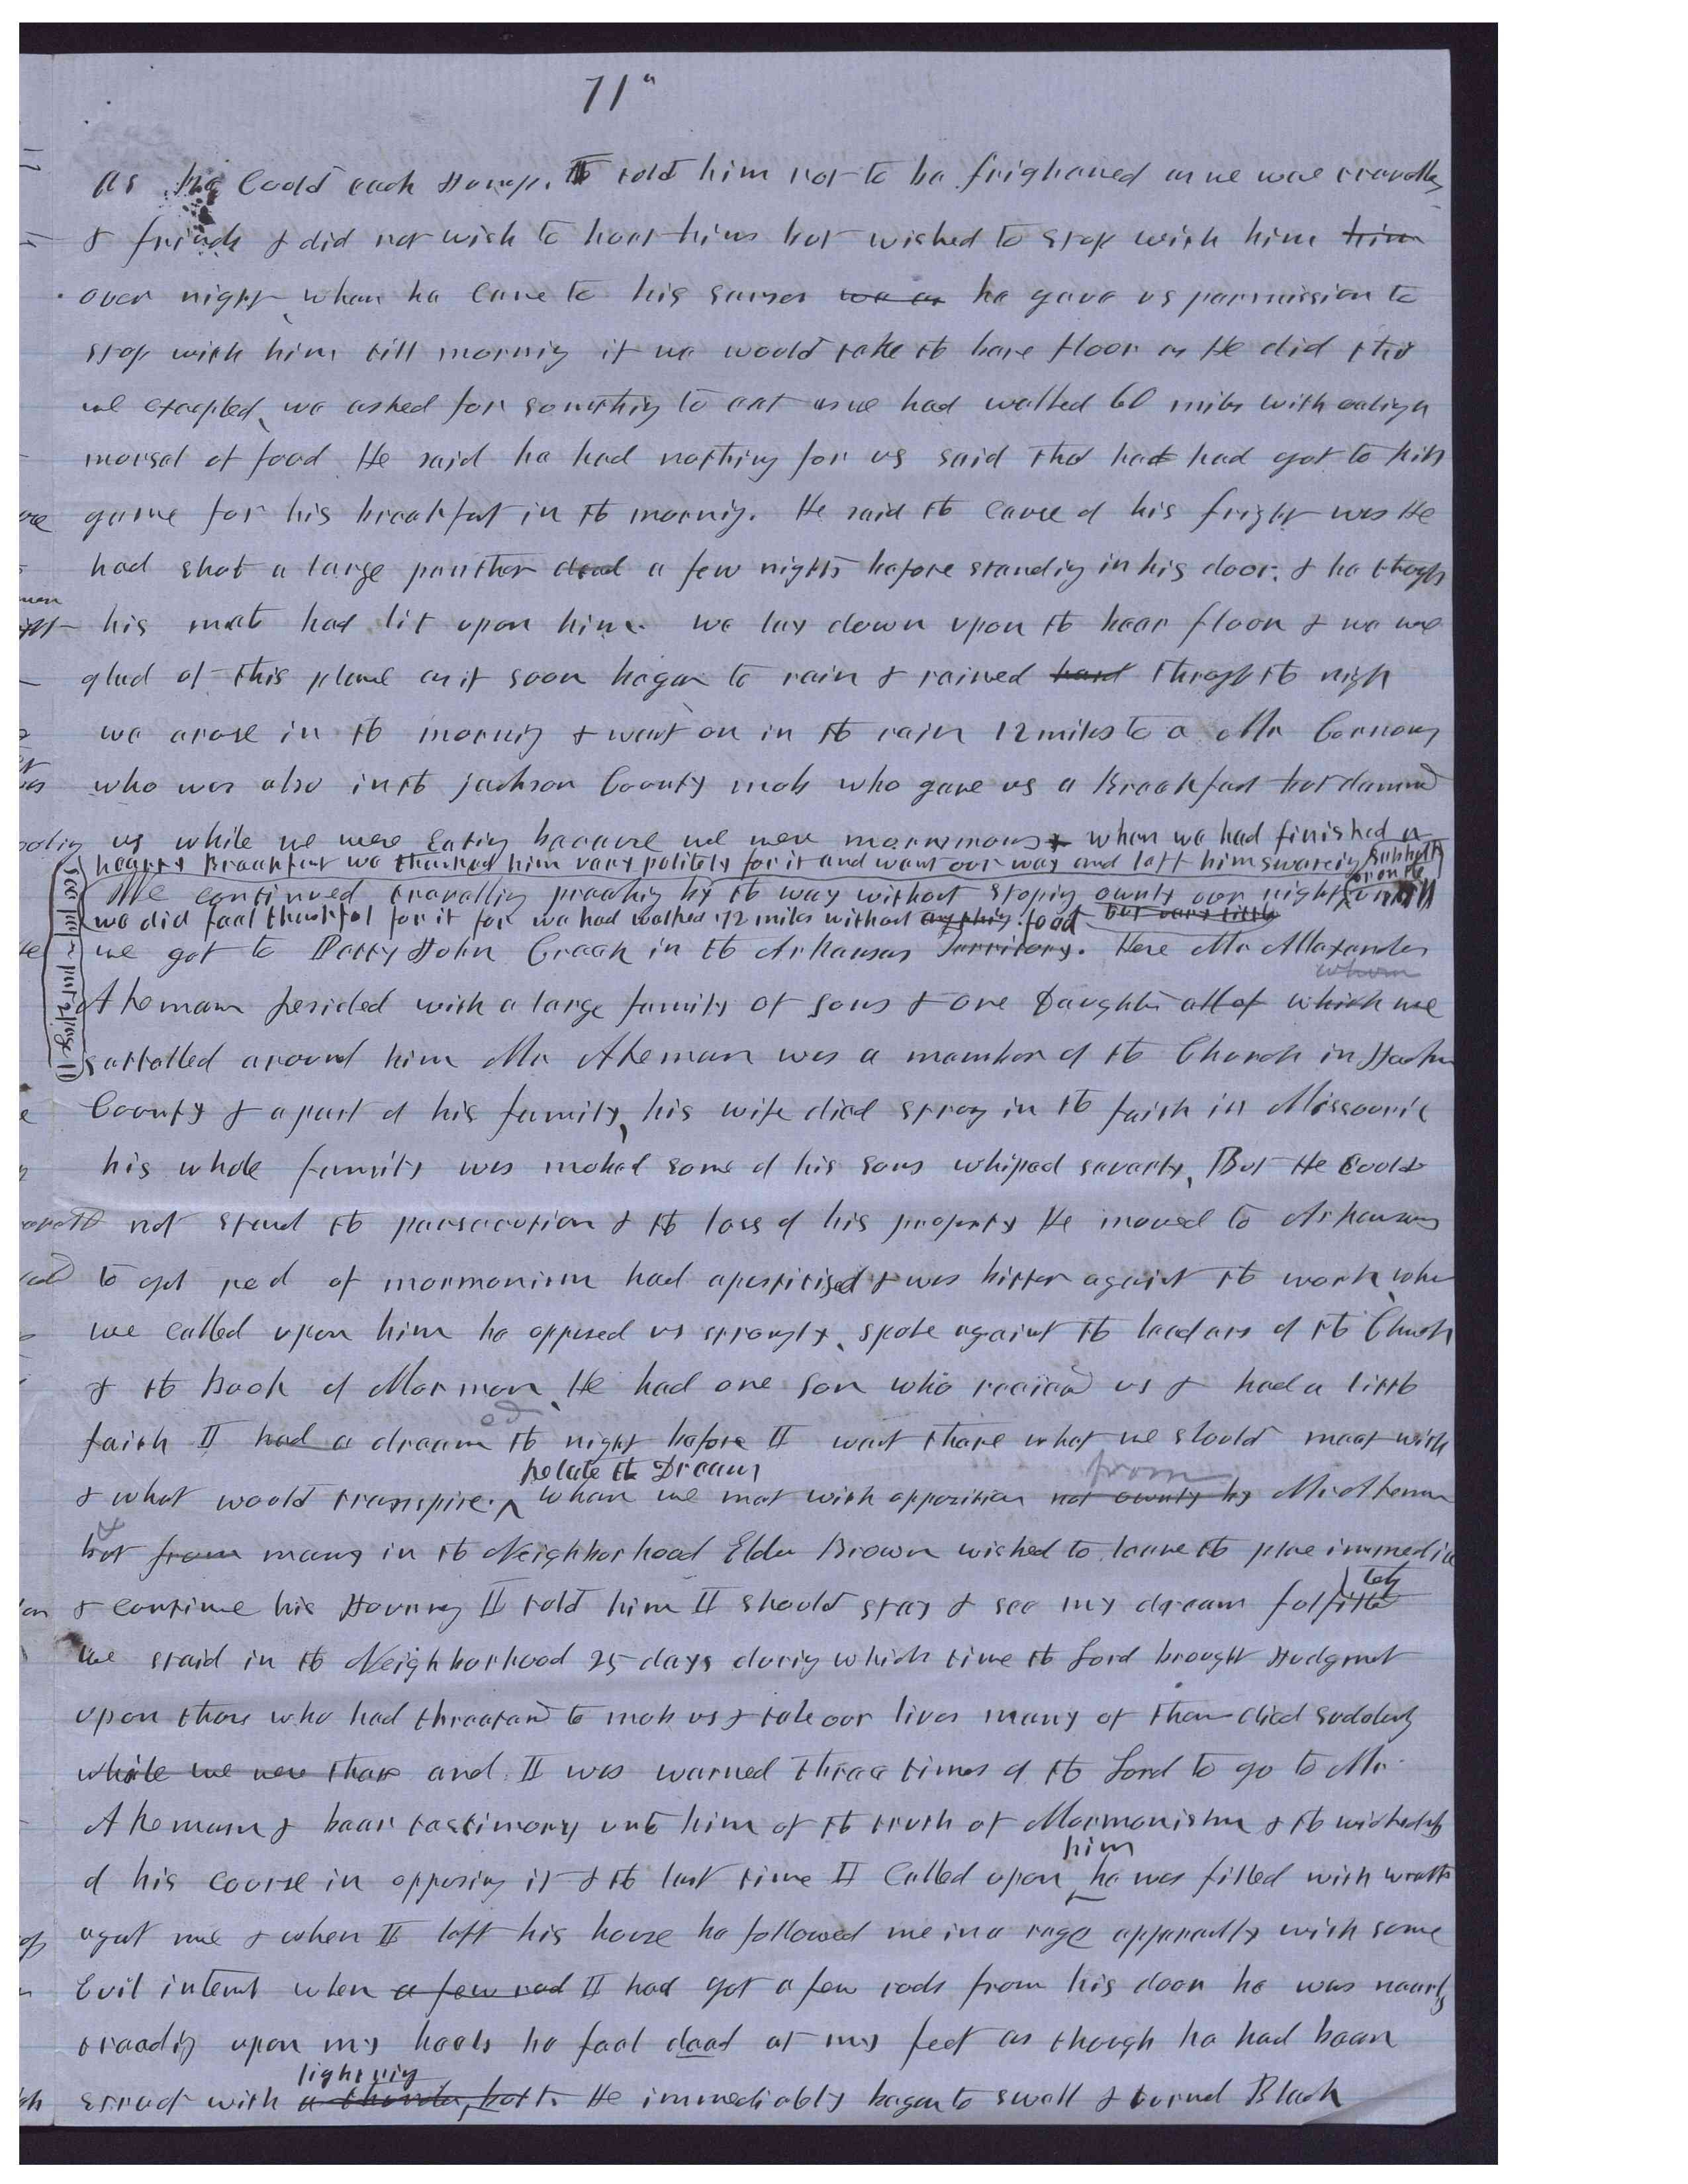 71"
as he Could each Jump. I told him not to be frighened as we ware travellers
& friends & did not wish to hurt him but wished to stop with him him
over night, when he Came to his senses we as he gave us permission to
stop with him till morning if we would take the bare floor as He did this
we excepted, we asked for something to eat as we had walked 60 miles with eating a
morsel of food He said he had nothing for us said that he had had got to kill
game for his breakfast in the morning. He said the cause of his fright was He
had shot a large panther dead a few nights before standing in his door. & he thought
his mate had lit upon him. we lay down upon the bear floor & we wer
glad of this place as it soon began to rain & rained hard through the night
we arose in the morning & went on in the rain 12 miles to a Mr Connoy
who was also in the jackson County mob who gave us a Breakfast but damned
us while we were Eating because we were mormons & when we had finished a
hearty Breakfast we thanked him very politely for it and went our way and left him swareing
we did feel thankful for it for we had walked 72 miles without any thing food but very little
We continued travelling preaching by the way without stoping ownly over night untill
we got to Petty John Creek in the Arkansas Territory. Here Mr Allexander
whom
Akeman resided with a large family of sons & one Daughter all of which we
settelled around him Mr Akeman was a member of the Church in Jackson
County & a part of his family, his wife died strong in the faith in Missourie
his whole family was mobed some of his sons whiped severly, But He Could
not stand the persecution & the loss of his property He moved to Arkansas
to get red of mormonism had apostitised & was bitter against the work, when
we called upon him he opposed us strongly, spoke against the leaders of the Church
& the Book of Mormon, He had one son who received us & had a little
ed
faith II had a dream the night before II went thare what we should meet with
Relate the Dream
& what would transpire. ^ When we met with opposition not ownly by from Mr Akeman
but & from many in the Neighborhood Elder Brown wished to leave the place immediately
& continue his Journey II told him II should stay & see my dream fulfilled
we staid in the Neighborhood 25 days during which time the Lord brought Judgment
upon those who had threatened to mob us & take our lives many of them died suddenly
while we were thare and II was warned three times of the Lord to go to Mr.
Akeman & bear testimony unto him of the truth of Mormonism & the wickedness
him
of his course in opposing it & the last time II Called upon ^ he was filled with wrath
agast me & when II left his house he followed me in a rage apparently with some
Evil intent when a few rod II had got a few rods from his door he was nearly
treading upon my heels he feel dead at my feet as though he had been
lightning
struct with a thunder, bolt. He immediately began to swell & turned Black
see per- part 2 page 11